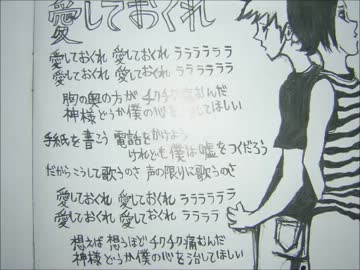 愛しておくれ
愛しておくれ 愛しておくれ ラララララララ
愛しておくれ 愛しておくれ ラララララララ
胸の奥の方が チクチク痛むんだ
神様どうか僕の心を治してほしい
手紙を書こう 電話をかけよう
けれども 僕は嘘をつくだろう
だからこうして歌うのさ 声の限りに歌うのさ
愛しておくれ 愛しておくれ ラララララララ
愛しておくれ 愛しておくれ ラララララララ
想えば 想うほど チクチク痛むんだ
神様どうか僕の心を治してほしい